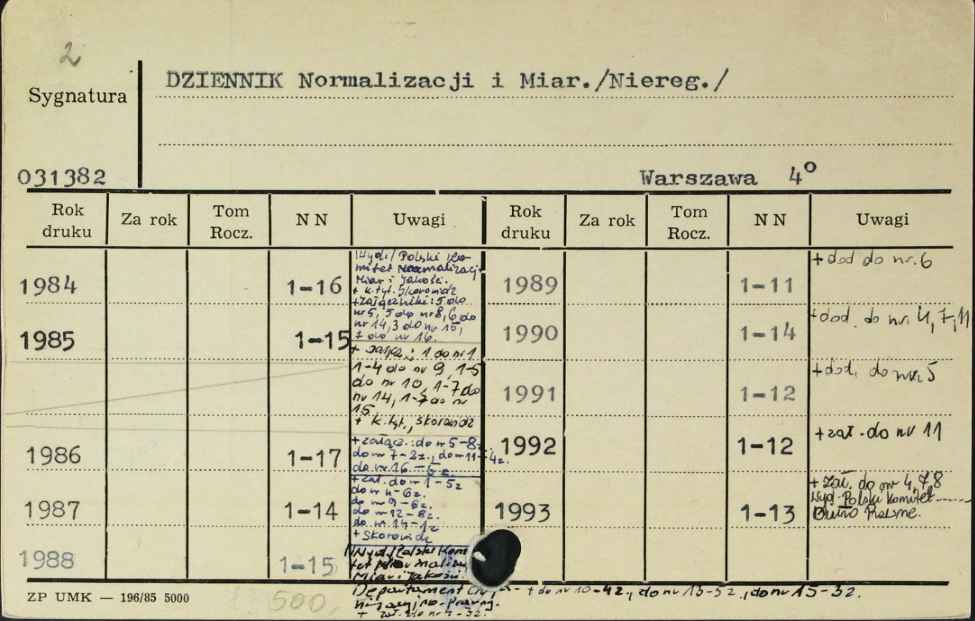 2
DZIENNIK Normalizacji i Miar./Niereg./
Sygnatura
031382
Warszawa 4°
Rok druku Za rok Tom Rocz. NN Uwagi Rok druku Za rok Tom Rocz. NN Uwagi
1984 1-16
Wyd./ Polski Ko-
mitet Normalizacji
Miar i Jakości.
+ k.tyt. Skorowidz
+załączniki: 5 do
nr 5, 5 do nr 8, 6 do
nr 14, 3 do nr 15,
7 do nr 16.
1985 1-15
+ załącz.: 1 do nr 1
1-4 do nr 9, 1-5
do nr 10, 1-7 do
nr 14, 1-7 do nr
15
+ k.tyt., skorowidz
1986 1-17
+załącz.: do nr 5-8z.
do nr 7-2z., do nr 11-4z.
do nr 16.-5z.
1987 1-14
+zał. do nr 1-5z
do nr 4-6z.
do nr 9-6z.
do nr 12-8z.
do nr 14-1z
+ skorowidz
1988 1-15
Wyd./Polski Komi
tet Normaliza
Miar i Jakości.
Departament
+ do nr 10-4z., do nr 13-5z., do nr 15-3z.
+ zał. do nr 7-3z.
1989 1-11 + dod do nr. 6
1990 1-14 +dod. do nr. 4, 7, 11
1991 1-12 +dod. do nr. 5
1992 1-12 +zał. do nr 11
1993 1-13 + zał. do nr 4, 7, 8
Wyd. Polski Komitet
Biuro Prawne.
ZP UMK — 196/85 5000
500,